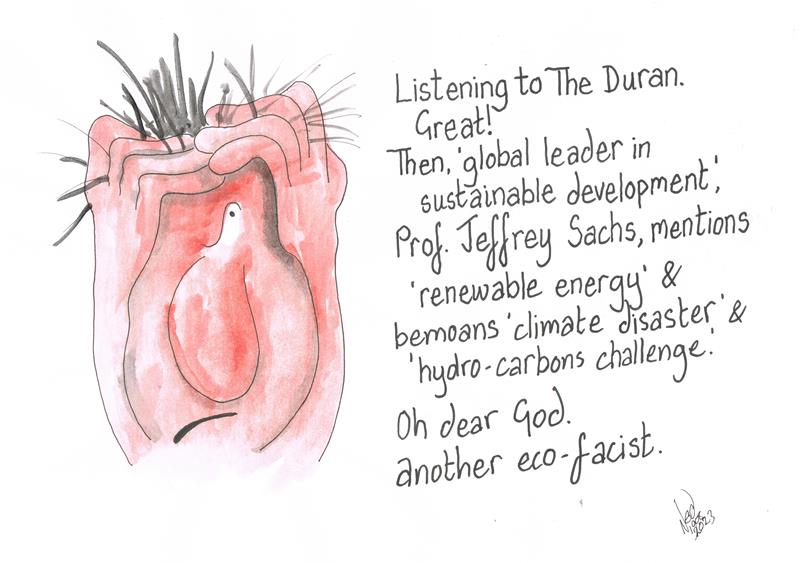 Listening to The Duran.
Great!
Then, 'global leader in
sustainable development',
Prof. Jeffrey Sachs, mentions
'renewable energy' &
bemoans 'climate disaster' &
'hydro-carbons challenge.'
Oh dear God.
another eco-facist.
2023